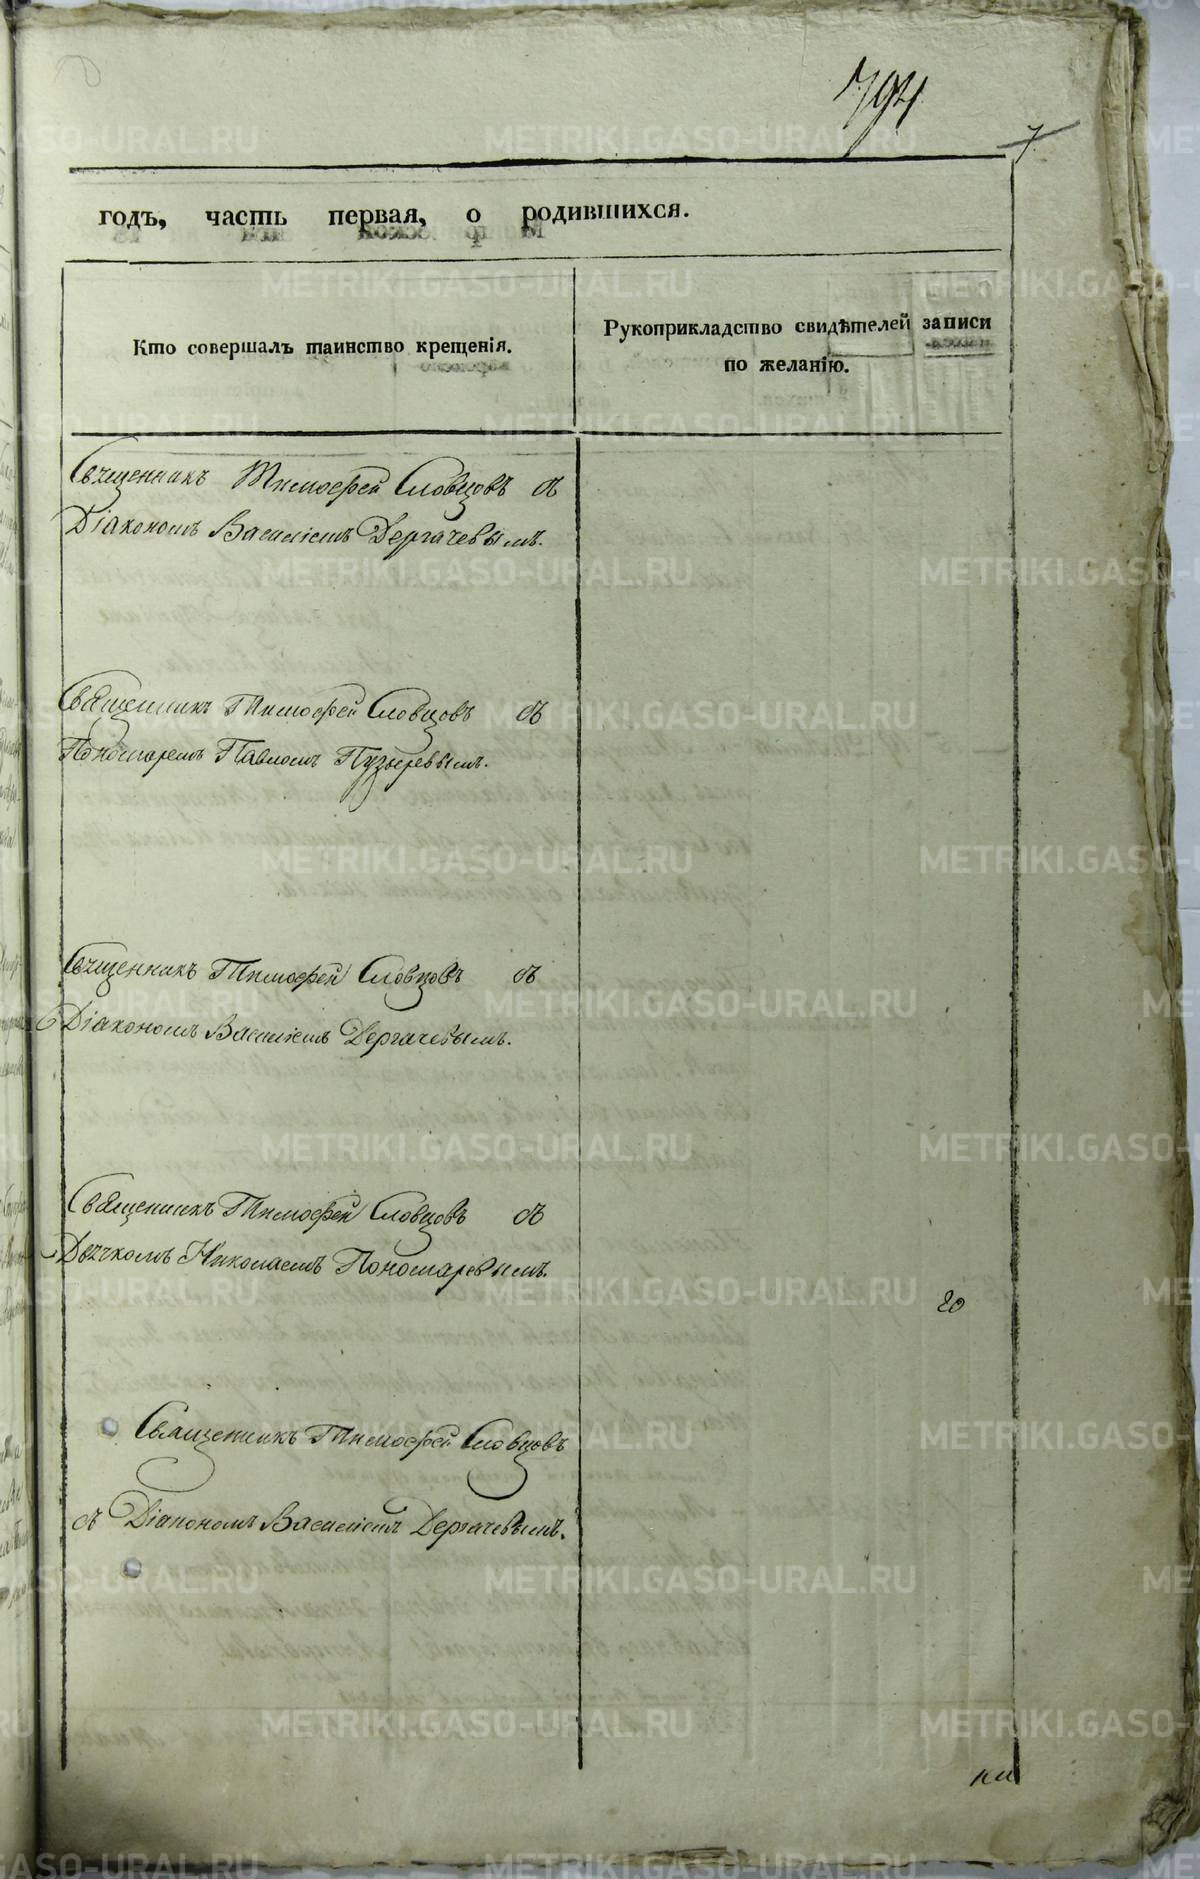 794
7
годъ, часть первая, о родившихся.
Кто совершалъ таинство крещенія.
Рукоприкладство свидѣтелей записи
по желанію.
Священникъ Тимофей Словцовъ съ
Діакономъ Василіемъ Дергачевымъ.
Священникъ Тимофей Словцовъ съ
Пономаремъ Павломъ Пузыревымъ.
Священникъ Тимофей Словцовъ съ
Діакономъ Василіемъ Дергачевымъ.
Священникъ Тимофей Словцовъ съ
Дьячкомъ Николаемъ Пономаревымъ.
20
Священникъ Тимофей Словцовъ
съ Діакономъ Василіемъ Дергачевымъ.
METRIKI.GASO-URAL.RU